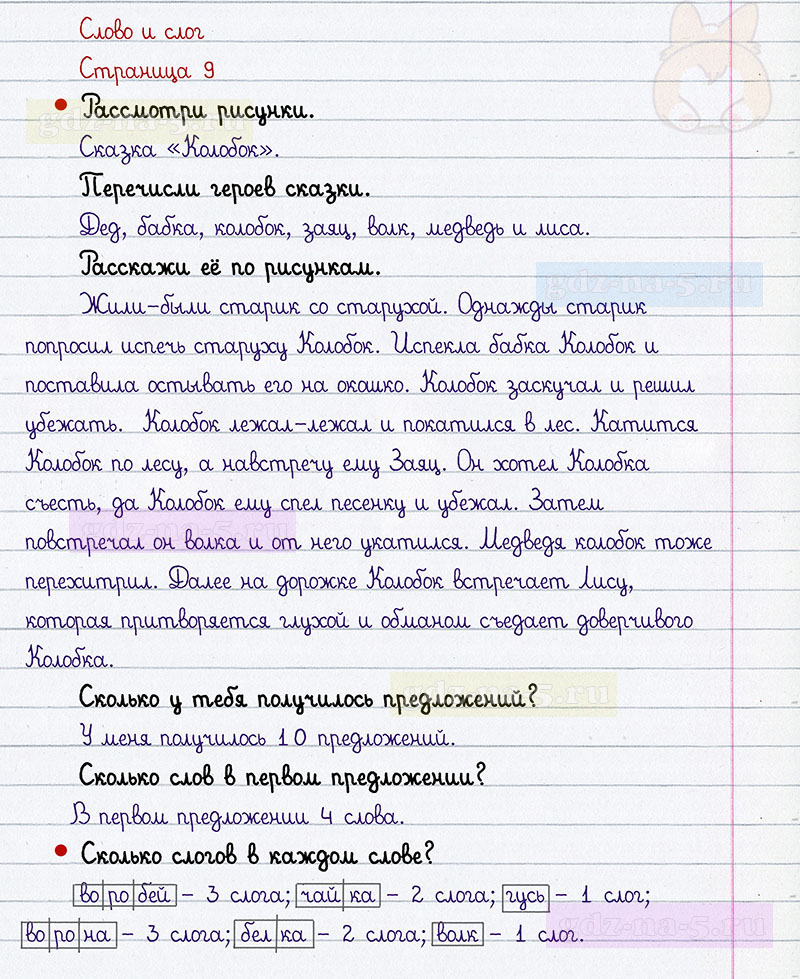 Слово и слог
Страница 9
• Рассмотри рисунки.
gdz-na-5.ru
Сказка «Колобок».
Перечисли героев сказки.
Дед, бабка, колобок, заяц, волк, медведь и лиса.
Расскажи её по рисункам.
gdz-na-5.ru
Жили-были старик со старухой. Однажды старик
попросил испечь старуху Колобок. Испекла бабка Колобок и
поставила остывать его на окошко. Колобок заскучал и решил
убежать. Колобок лежал-лежал и покатился в лес. Катится
Колобок по лесу, а навстречу ему Заяц. Он хотел Колобка
съесть, да Колобок ему спел песенку и убежал. Затем
gdz-na-5.ru
повстречал он волка и от него укатился. Медведя колобок тоже
перехитрил. Далее на дорожке Колобок встречает Лису,
которая притворяется глухой и обманом съедает доверчивого
Колобка.
Сколько у тебя получилось предложений?
gdz-na-5.ru
У меня получилось 10 предложений.
Сколько слов в первом предложении?
В первом предложении 4 слова.
• Сколько слогов в каждом слове?
во|ро|бей – 3 слога; чай|ка – 2 слога; гусь – 1 слог;
во|ро|на – 3 слога; бел|ка – 2 слога; волк – 1 слог.
gdz-na-5.ru